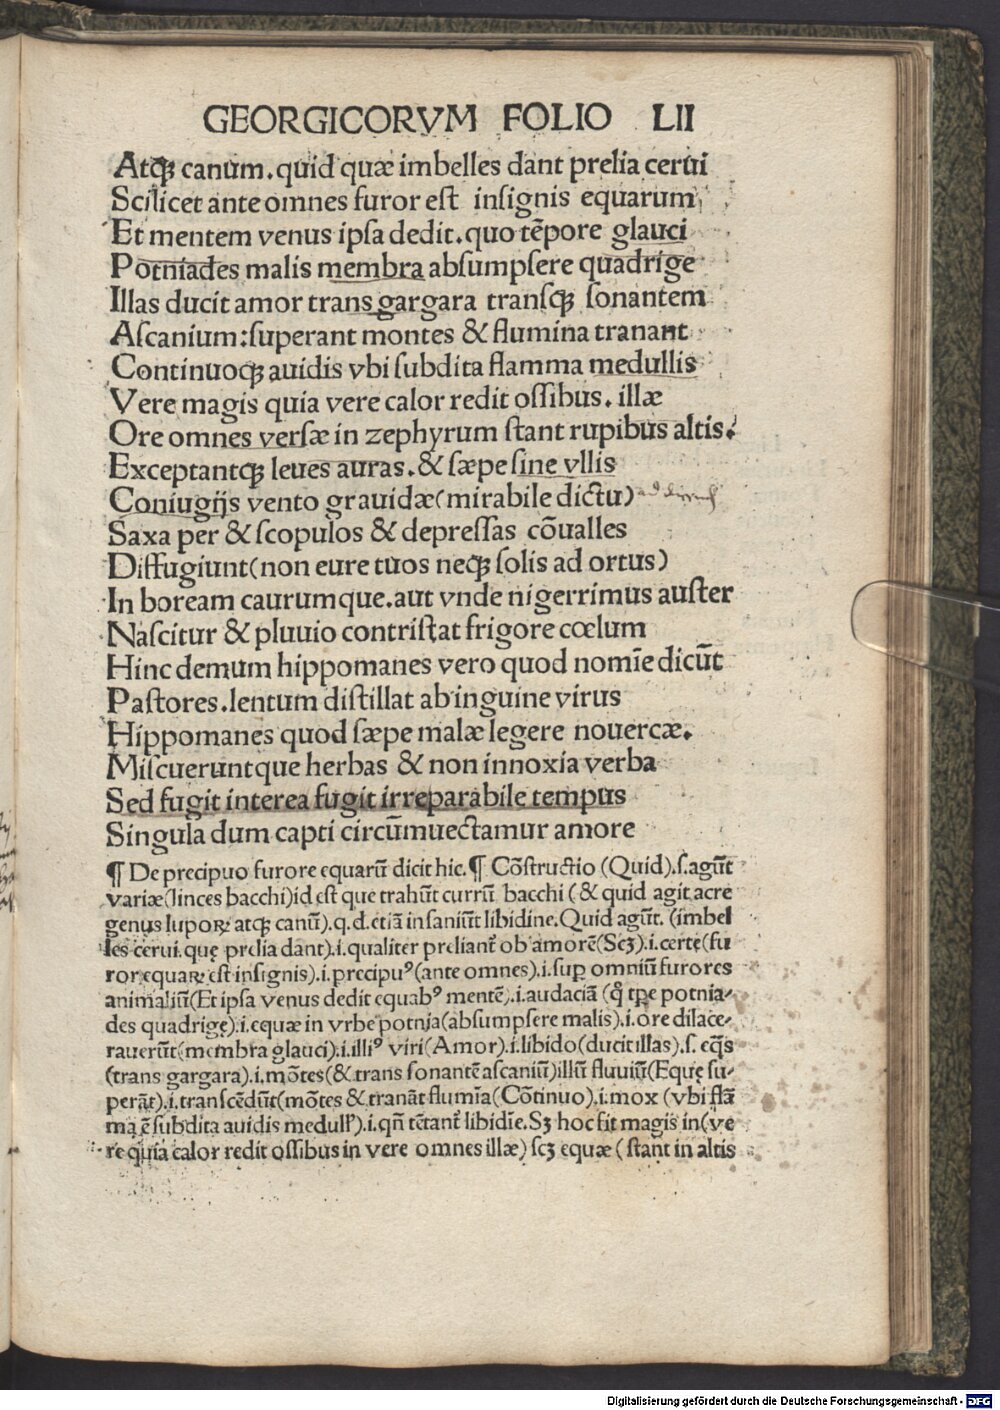 GEORGICORVM FOLIO LII
Atqꝫ canum. quid quæ imbelles dant prelia cerui
Scilicet ante omnes furor est insignis equarum
Et mentem venus ipsa dedit. quo tēpore glauci
Potniades malis membra absumpsere quadrige
Illas ducit amor trans gargara transqꝫ sonantem
Ascanium: superant montes & flumina tranant
Continuoqꝫ auidis vbi subdita flamma medullis
Vere magis quia vere calor redit ossibus. illæ
Ore omnes versæ in zephyrum stant rupibus altis.
Exceptantqꝫ leues auras. & sæpe sine vllis
Coniugijs vento grauidæ (mirabile dictu)
Saxa per & scopulos & depressas cōualles
Diffugiunt (non eure tuos neqꝫ solis ad ortus)
In boream caurumque. aut vnde nigerrimus auster
Nascitur & pluuio contristat frigore cœlum
Hinc demum hippomanes vero quod nomīe dicūt
Pastores. lentum distillat ab inguine virus
Hippomanes quod sæpe malæ legere nouercæ.
Miscueruntque herbas & non innoxia verba
Sed fugit interea fugit irreparabile tempus
Singula dum capti circūmuectamur amore
¶ De precipuo furore equarū dicit hic. ¶ Cōstructio (Quid) .s. agūt
variæ (linces bacchi) id est que trahūt currū bacchi (& quid agit acre
genus lupoꝝ atqꝫ canū) .q.d. etiā insaniūt libidine. Quid agūt. (imbel
les cerui. quę prelia dant) .i. qualiter preliant᷑ ob amorē (Scꝫ) .i. certe (fu
ror equaꝝ est insignis) .i. precipuꝰ (ante omnes) .i. suꝑ omniū furores
animaliū (Et ipsa venus dedit equabꝰ mentē) .i. audaciā (q̊ tꝑe potnia-
des quadrigę) .i. equæ in vrbe potnia (absumpsere malis) .i. ore dilace-
rauerūt (membra glauci) .i. illiꝰ viri (Amor) .i. libido (ducit illas) .s. eq̄s
(trans gargara) .i. mōtes (& trans sonantē ascaniū) illū fluuiū (Equę su-
perāt) .i. transcēdūt (mōtes & tranāt flumīa (Cōtinuo) .i. mox (vbi flā
ma ē subdita auidis medull') .i. qn̄ tētant᷑ libidīe. Sꝫ hoc fit magis in (ve
re quia calor redit ossibus in vere omnes illæ) scꝫ equæ (stant in altis
Digitalisierung gefördert durch die Deutsche Forschungsgemeinschaft - DFG